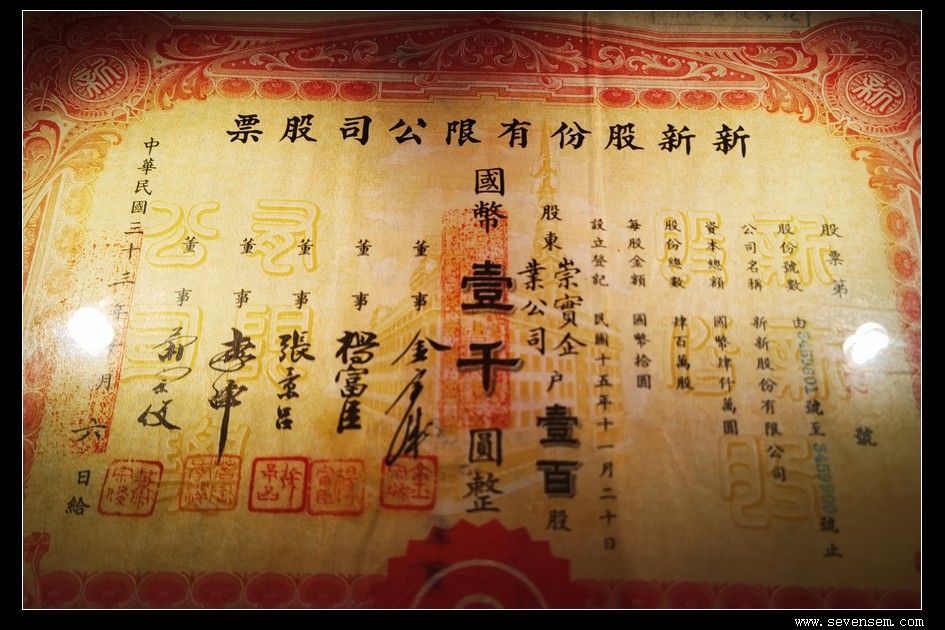 新新股份有限公司股票
股票第 號
股份號數 由 號至 號止
公司名稱 新新股份有限公司
資本總額 國幣肆仟萬圓
股份總數 肆百萬股
每股金額 國幣拾圓
設立登記 民國十五年十一月二十日
股東 崇實企業公司 戶 壹百股
國幣壹千圓整
董事 金
董事 楊富臣
董事 張景呂
董事 李
董事
中華民國三十 年 月六日給
www.sevensem.com